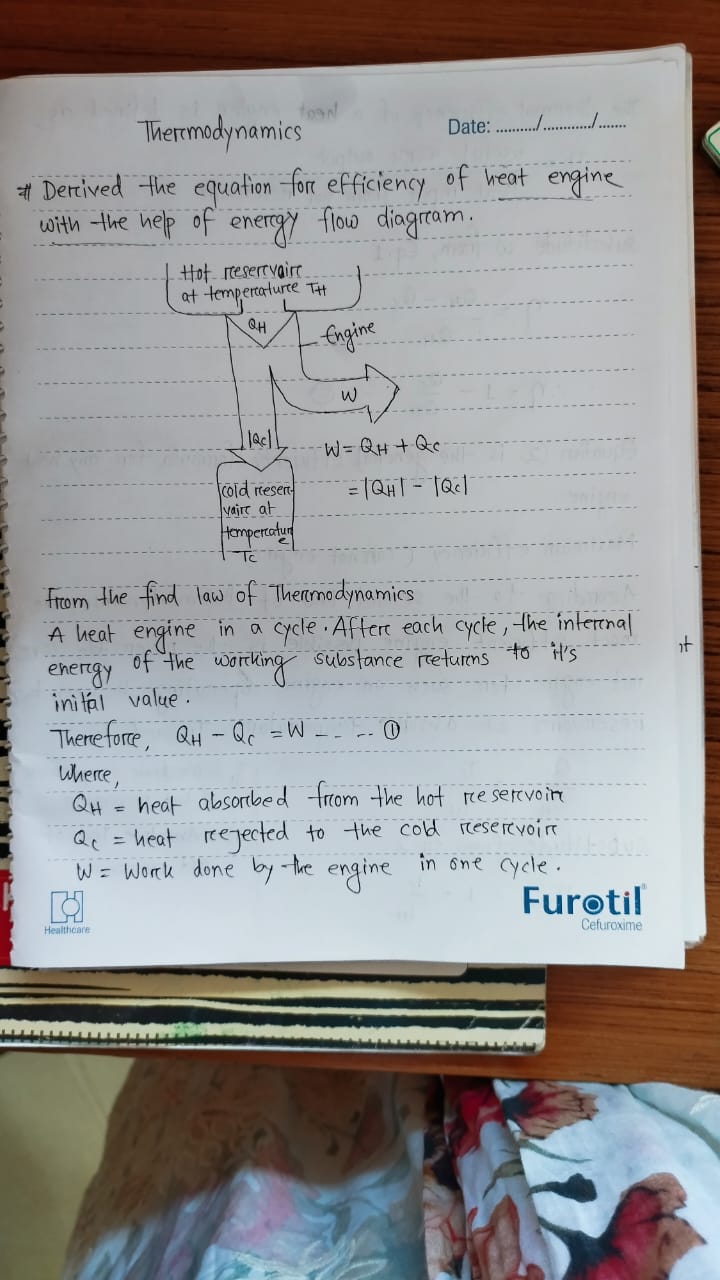 Thermodynamics
Date: ........../............/.......
# Derived the equation for efficiency of heat engine
with the help of energy flow diagram.
Hot reservoir
at temperature TH
QH
Engine
W
|Qc|
W = QH + Qc
= |QH| - |Qc|
cold reser-
voir at
temperature
Tc
from the find law of Thermodynamics
A heat engine in a cycle. After each cycle, the internal
energy of the working substance returns to it's
initial value.
Therefore, QH - Qc = W - - -- ①
Where,
QH = heat absorbed from the hot reservoir
Qc = heat rejected to the cold reservoir
W = Work done by the engine in one cycle.
Healthcare
Furotil
Cefuroxime